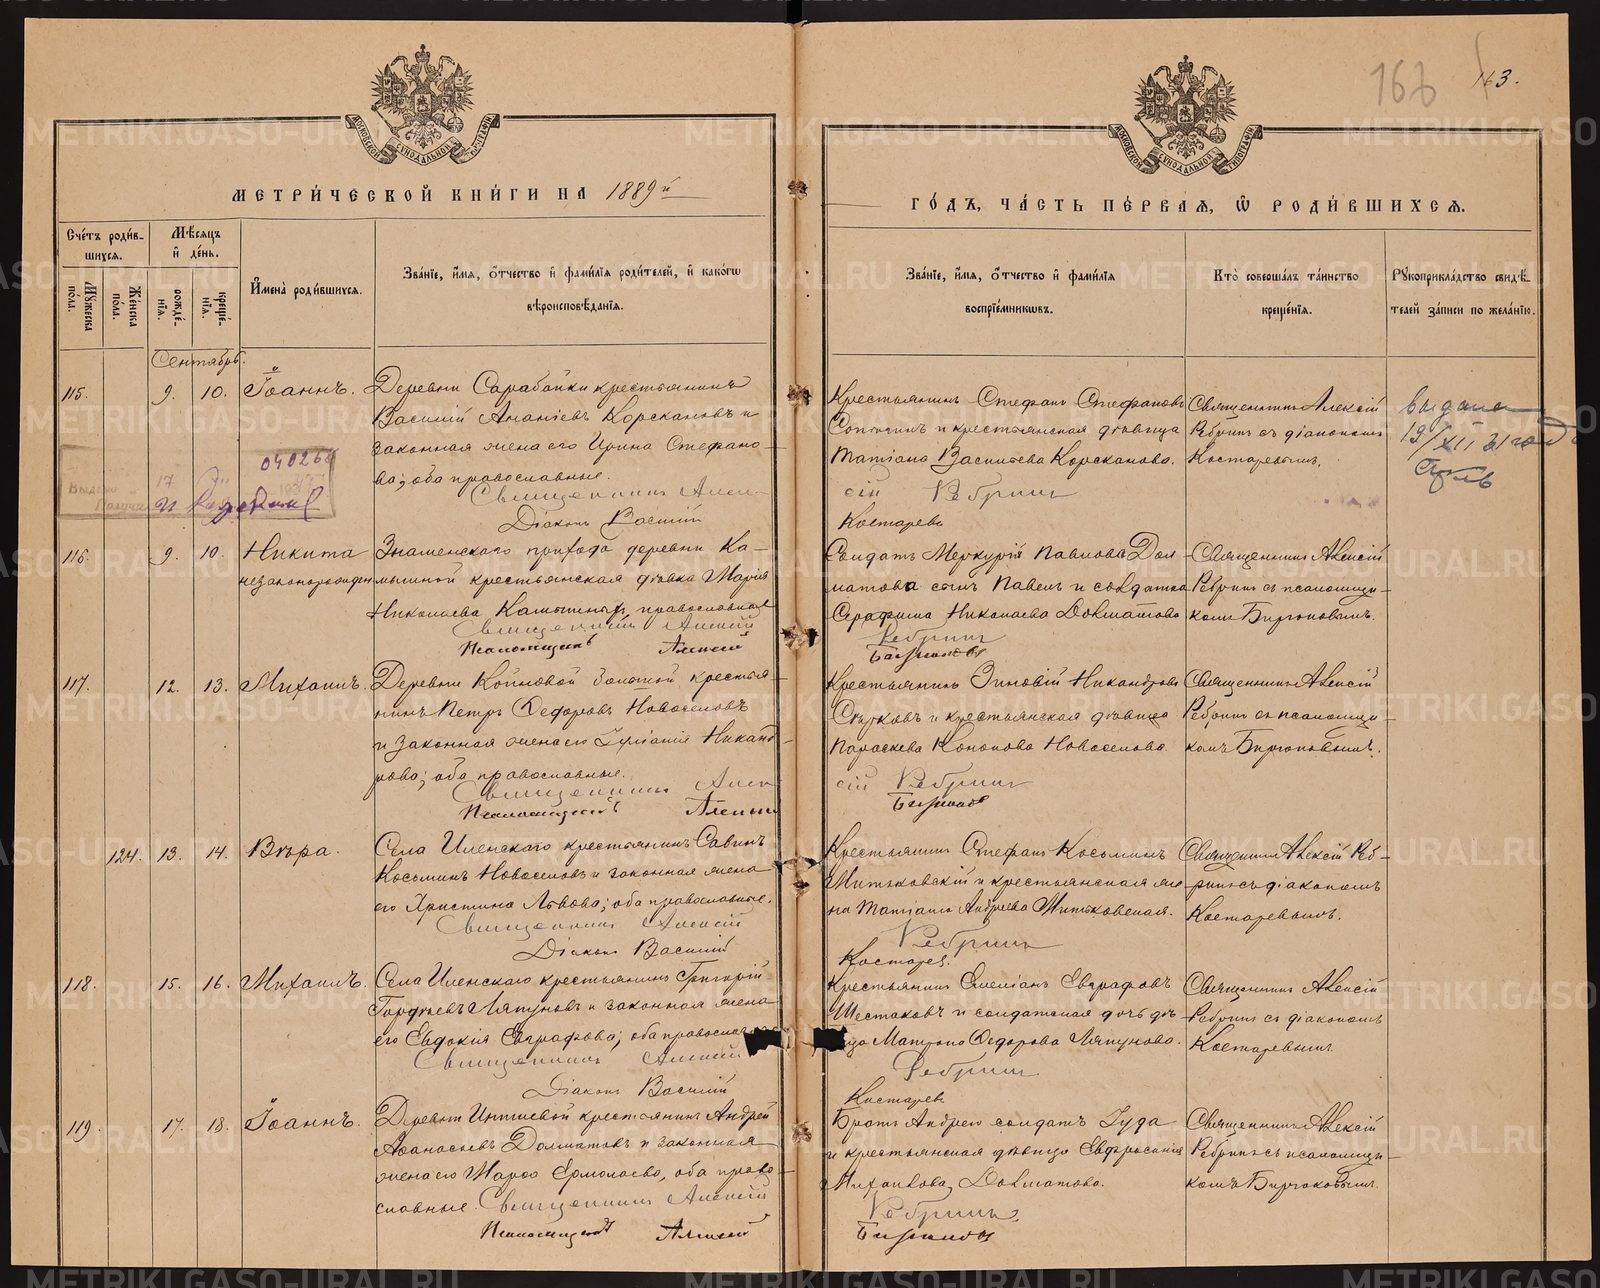 163.
МЕТРИ́ЧЕСКОЙ КНИ́ГИ НА 1889й
ГО́ДЪ, ЧА́СТЬ ПЕ́РВАѦ, Ѡ РОДИ́ВШИХСѦ.
Сче́тъ роди́в-
шихся.
Мѣ́сяцъ
и де́нь.
Имена̀ роди́вшихся.
Зва́нїе, и́мя, о́тчество и фами́лїя роди́телей, и како́гѡ
вѣроисповѣ́данїя.
Зва́нїе, и́мя, о́тчество и фами́лїя
воспрїе́мникѡвъ.
Кто̀ соверша́лъ та́инство
креще́нїя.
Рꙋкоприкла́дство свидѣ́-
телей за́писи по жела́нїю.
Мꙋ́жеска по́ла.
Же́нска по́ла.
рожде́-
нїя.
креще́-
нїя.
Сентябрь.
115.
9.
10.
Іоаннъ.
Деревни Сарабайки крестьянинъ
Василій Ананіевъ Корскановъ и
законная жена его Ирина Стефано-
ва; оба православные.
Священникъ Алек-
Діаконъ Василій
Крестьянинъ Стефанъ Стефановъ
и крестьянская дѣвица
Татіана Васильева Корсканова.
сій Ребринъ
Костаревъ
Священникъ Алексій
Ребринъ съ діакономъ
Костаревымъ.
выдана
040268
116.
9.
10.
Никита
незаконорожден
Знаменскаго прихода деревни Ка-
мышной крестьянская дѣвка Марія
Николаева православная
Священникъ Алексій
Псаломщикъ Алексій
Солдатъ Меркурій Павловъ Дол
матова сынъ Павелъ и солдатка
Серафима Николаева Долматова
Ребринъ
Биргоковъ
Священникъ Алексій
Ребринъ съ псаломщи-
комъ Биргоковымъ.
117.
12.
13.
Михаилъ.
Деревни крестья-
нинъ Петръ Ѳедоровъ Новоселовъ
и законная жена его Іуліанія Никанд-
рова; оба православные.
Священникъ Алек
Псаломщикъ Алексій
Крестьянинъ Зиновій Никандровъ
и крестьянская дѣвица
Параскева Кононова Новоселова.
сій Ребринъ
Биргоковъ
Священникъ Алексій
Ребринъ съ псаломщи-
комъ Биргоковымъ.
124.
13.
14.
Вѣра.
Села Иленскаго крестьянинъ Савинъ
Косьминъ Новоселовъ и законная жена
его Христина Львова; оба православные.
Священникъ Алексій
Діаконъ Василій
Крестьянинъ Стефанъ Косьминъ
Митьковскій и крестьянская же
на Татіана Андреева Митьковская.
Ребринъ
Костарев.
Священникъ Алексій Реб-
ринъ съ діакономъ
Костаревымъ.
118.
15.
16.
Михаилъ.
Села Иленскаго крестьянинъ Григорій
Гордѣевъ Ляпуновъ и законная жена
его Евдокія Евграфова; оба православные
Священникъ Алексій
Діаконъ Василій
Крестьянинъ Емеліанъ Евграфовъ
Шестаковъ и солдатская дочь дѣ-
вица Матрона Ѳедорова Ляпунова.
Ребринъ
Костаревъ
Священникъ Алексій
Ребринъ съ діакономъ
Костаревымъ.
119.
17.
18.
Іоаннъ.
Деревни крестьянинъ Андрей
Аѳанасьевъ Долматовъ и законная
жена его Марѳа Ермолаева, оба право-
славные Священникъ Алексій
Псаломщикъ Алексій
Братъ Андрея солдатъ Іуда
и крестьянская дѣвица Евфросинія
Михаилова Долматова.
Ребринъ
Биргоковъ
Священникъ Алексій
Ребринъ съ псаломщи-
комъ Биргоковымъ.
METRIKI.GASO-URAL.RU